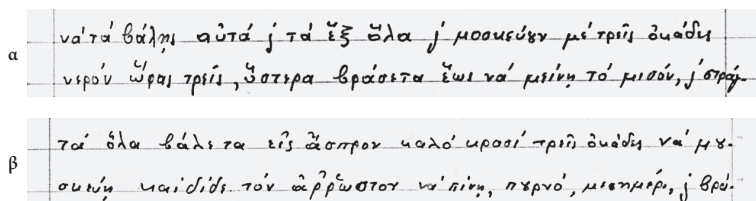 α
νὰ τὰ βάλῃς αὐτὰ ϗ τὰ ἕξ ὅλα ϗ μοσκεύουν μὲ τρεῖς ὀκάδες
νερὸν ὥρας τρεῖς, ὕστερα βράσετα ἕως νὰ μείνῃ τὸ μισόν, ϗ στράγ-
β
τὰ ὅλα βάλε τα εἰς ἄσπρον καλὸ κρασὶ τρεῖς ὀκάδες νὰ μου-
σκεύῃ καὶ δίδε τὸν ἄῤῥωστον νὰ πίνῃ, πυρνό, μεσημέρι, ϗ βρά-